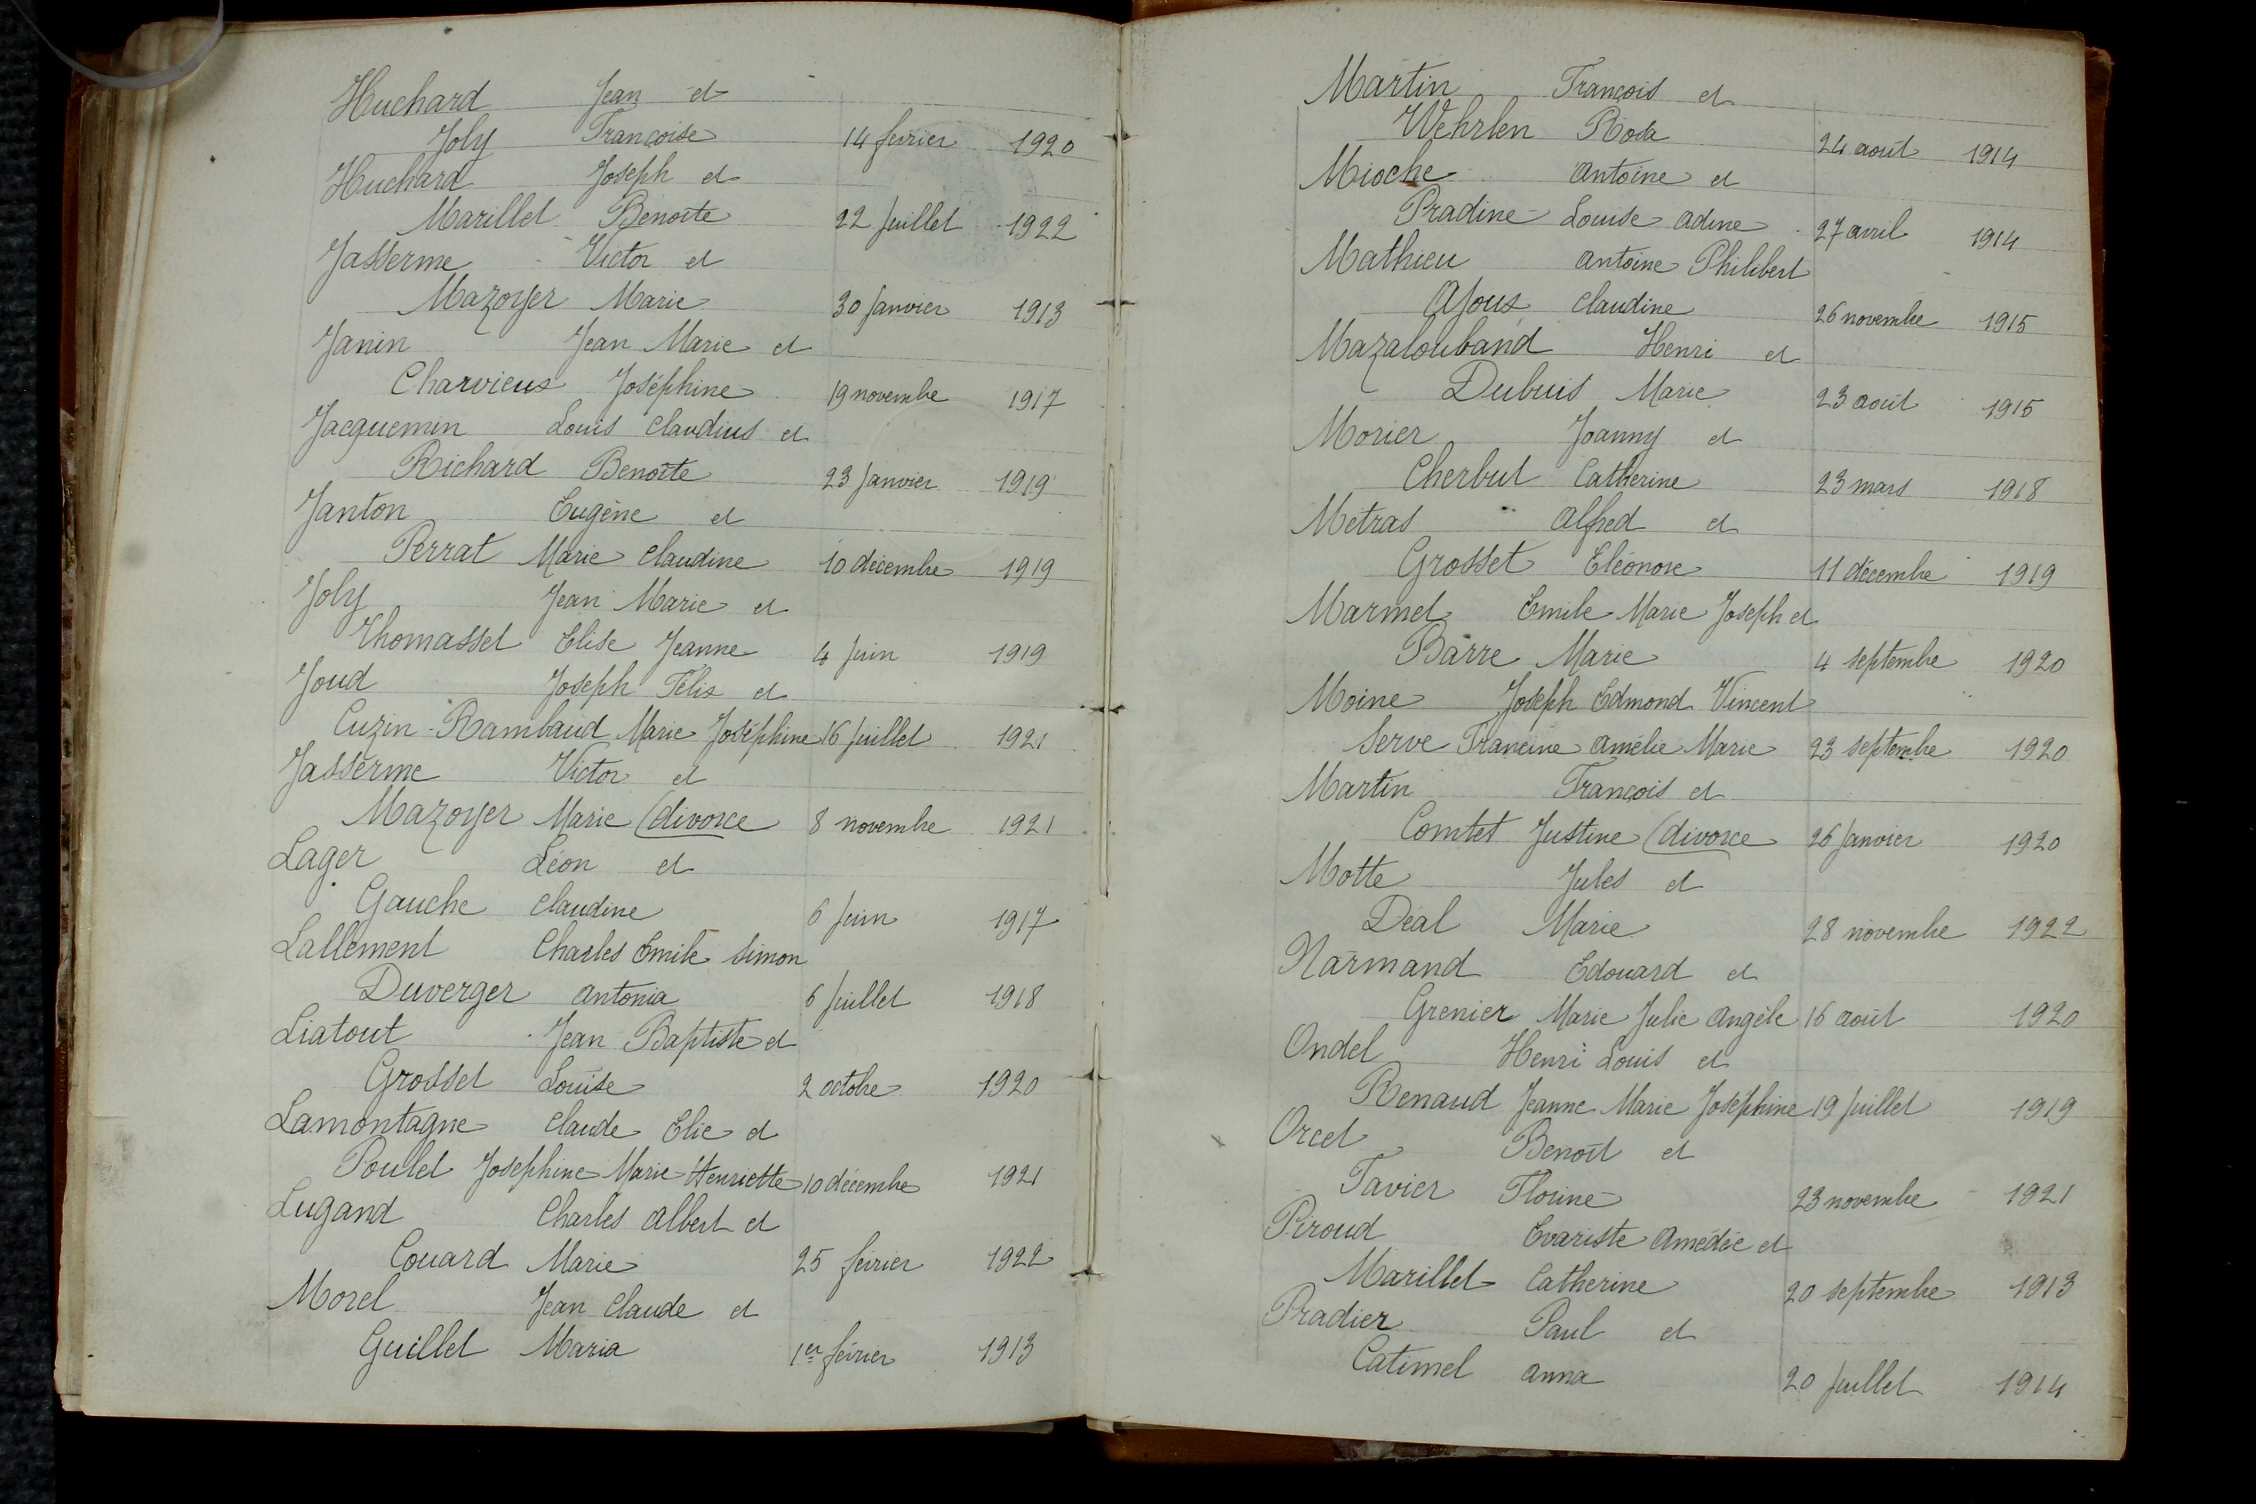 Huchard Jean et
Joly Françoise 14 février 1920
Huchard Joseph et
Marillet Benoite 22 Juillet 1922
Jasserme Victor et
Mazoyer Marie 30 Janvier 1913
Janin Jean Marie et
Charvieux Joséphine 19 novembre 1917
Jacquemin Louis Claudius et
Richard Benoîte 23 Janvier 1919
Janton Eugène et
Perrat Marie Claudine 10 décembre 1919
Joly Jean Marie et
Thomasset Elise Jeanne 4 Juin 1919
Joud Joseph Félix et
Cuzin-Rambaud Marie Joséphine 16 Juillet 1921
Jasserme Victor et
Mazoyer Marie (divorce 8 novembre 1921
Lager Léon et
Gauche Claudine 6 Juin 1917
Lallement Charles Emile Simon
Duverger Antonia 6 Juillet 1918
Liatout Jean Baptiste et
Grosset Louise 2 octobre 1920
Lamontagne Claude Elie et
Poulet Josephine Marie Henriette 10 décembre 1921
Lugand Charles Albert et
Couard Marie 25 février 1922
Morel Jean Claude et
Guillet Maria 1er février 1913
Martin François et
Wehrlen Rosa 24 août 1914
Mioche Antoine et
Pradine Louise Adine 27 avril 1914
Mathieu Antoine Philibert
Ajoux Claudine 26 novembre 1915
Mazaloubaud Henri et
Dubuis Marie 23 août 1915
Morier Joanny et
Cherbut Catherine 23 mars 1918
Metras Alfred et
Grosset Eléonore 11 décembre 1919
Marmet Emile Marie Joseph et
Barre Marie 4 septembre 1920
Moine Joseph Edmond Vincent
Serve Francine Amélie Marie 23 septembre 1920
Martin François et
Comtet Justine (divorce 26 Janvier 1920
Motte Jules et
Déal Marie 28 novembre 1922
Narmand Edouard et
Grenier Marie Julie Angèle 16 août 1920
Ondel Henri Louis et
Renaud Jeanne Marie Joséphine 19 Juillet 1919
Orcet Benoît et
Favier Florine 23 novembre 1921
Piroud Evariste Amédée et
Marillet Catherine 20 septembre 1913
Pradier Paul et
Catimel Anna 20 Juillet 1914